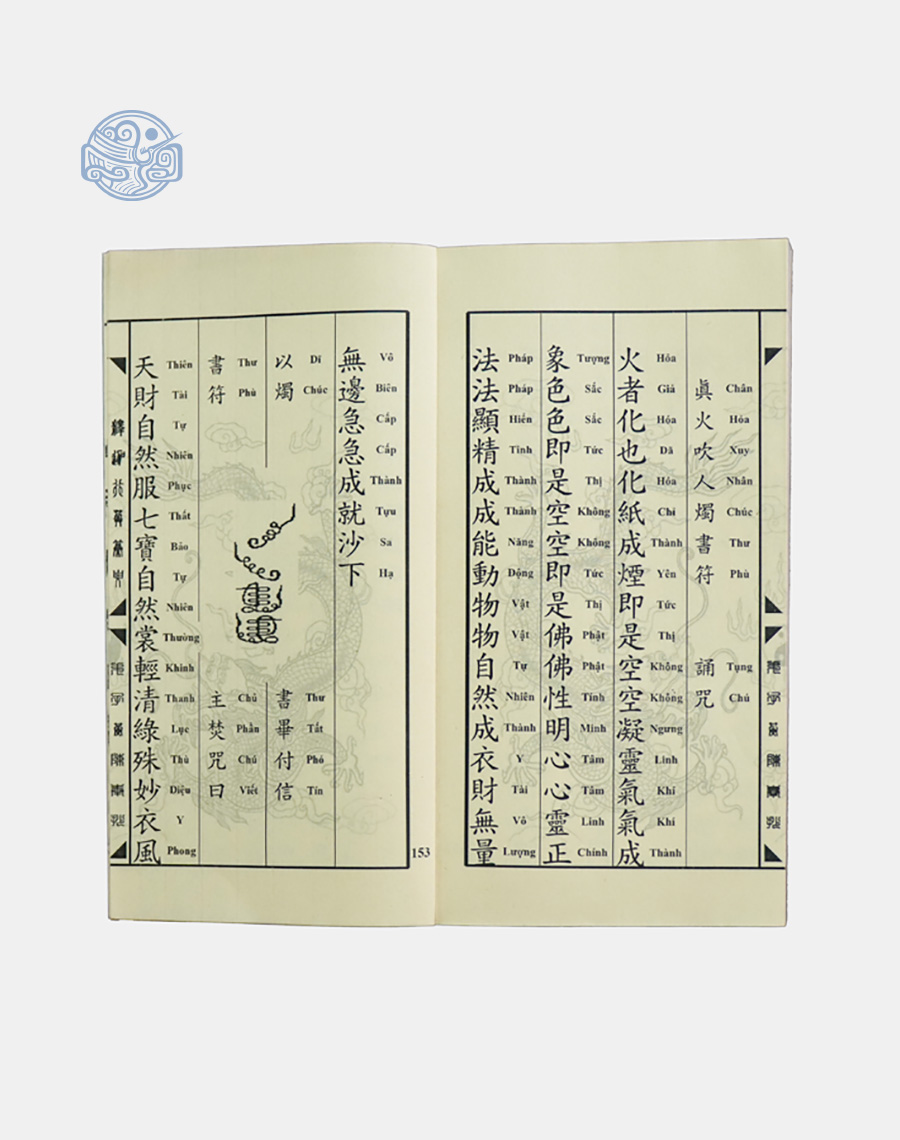 眞火吹人燭書符 誦咒
Chân Hỏa Xuy Nhân Chúc Thư Phù Tụng Chú
火者化也化紙成煙即是空空凝靈氣氣成
Hỏa Giả Hóa Dã Hóa Chỉ Thành Yên Tức Thị Không Không Ngưng Linh Khí Khí Thành
象色色即是空空即是佛佛性明心心靈正
Tượng Sắc Sắc Tức Thị Không Không Tức Thị Phật Phật Tính Minh Tâm Tâm Linh Chính
法法顯精成成能動物物自然成衣財無量
Pháp Pháp Hiển Tinh Thành Thành Năng Động Vật Vật Tự Nhiên Thành Y Tài Vô Lượng
無邊急急成就沙下
Vô Biên Cấp Cấp Thành Tựu Sa Hạ
以燭
Dĩ Chúc
書畢付信
Thư Tất Phó Tín
書符
Thư Phù
主焚咒曰
Chủ Phần Chú Viết
天財自然服七寶自然裳輕清綠殊妙衣風
Thiên Tài Tự Nhiên Phục Thất Bảo Tự Nhiên Thường Khinh Thanh Lục Thù Diệu Y Phong
153